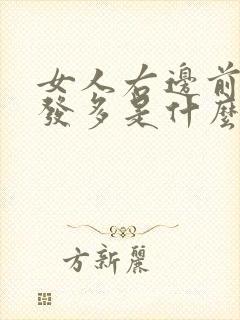 女人右邊前
發多是什麼
方新麗